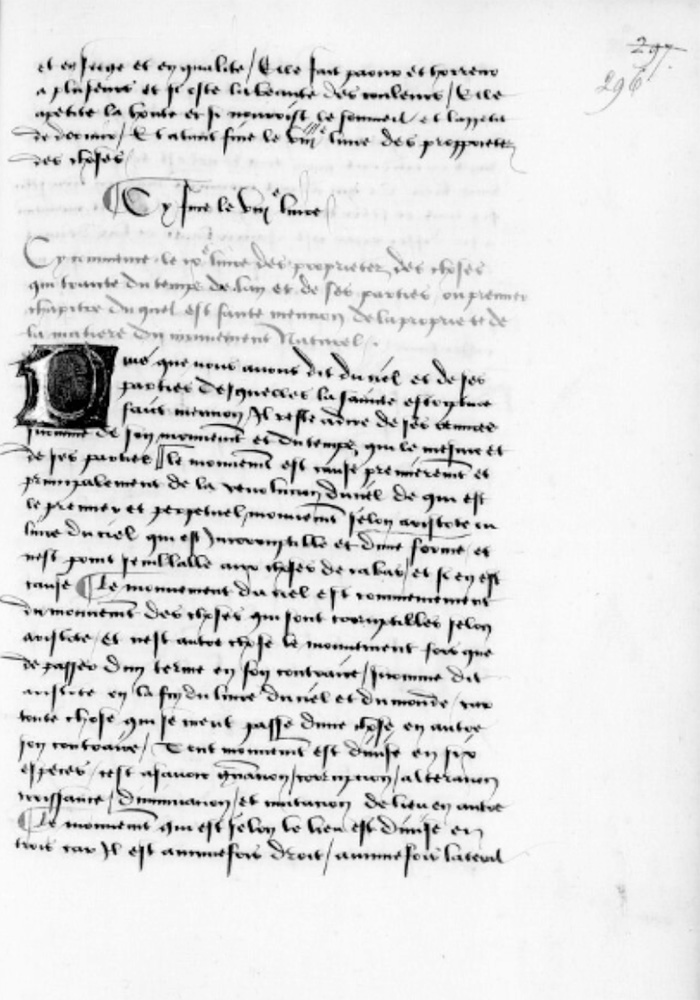 297.
296
et en siege et en qualite / Elle fait paour et horreur
a pluseurs et si oste la beaute des couleurs / Elle
apetite la honte et si nourrist le sommeil et lappetit
de dormir / Et atant fine le viij^e livre des proprietez
des choses
Cy fine le viij^e livre
Cy commence le ix^e livre des proprietez des choses
qui traicte du temps de lan et de ses parties ou premier
chapitre duquel est faicte mencion de la propriete de
la matiere du mouvement Naturel.
Puis que nous avons dit du ciel et de ses
parties desquelles la saincte escripture
fait mencion Il reste a dire de ses
de son mouvement et du temps qui le mesure et
de ses parties le mouvement est cause premierement et
principalement de la revolucion du ciel de qui est
le premier et perpetuel mouvement selon aristote ou
livre du ciel qui est Incorruptible et dune forme et
nest point semblable aux choses de ca bas et si en est
cause Le mouvement du ciel est commencement
du mouvement des choses qui sont corruptibles selon
aristote et nest autre chose le mouvement fors que
de passer dun terme en son contraire / sicomme dit
aristote en la fin du livre du ciel et du monde / car
toute chose qui se meut passe dune chose en autre
son contraire / Tout mouvement est divise en six
especes / cest assavoir generacion / corrupcion / alteracion
croissance / diminucion / et mutacion de lieu en autre
Le mouvement qui est selon le lieu est divise en
trois car Il est aucunefois droit / aucunefois lateral